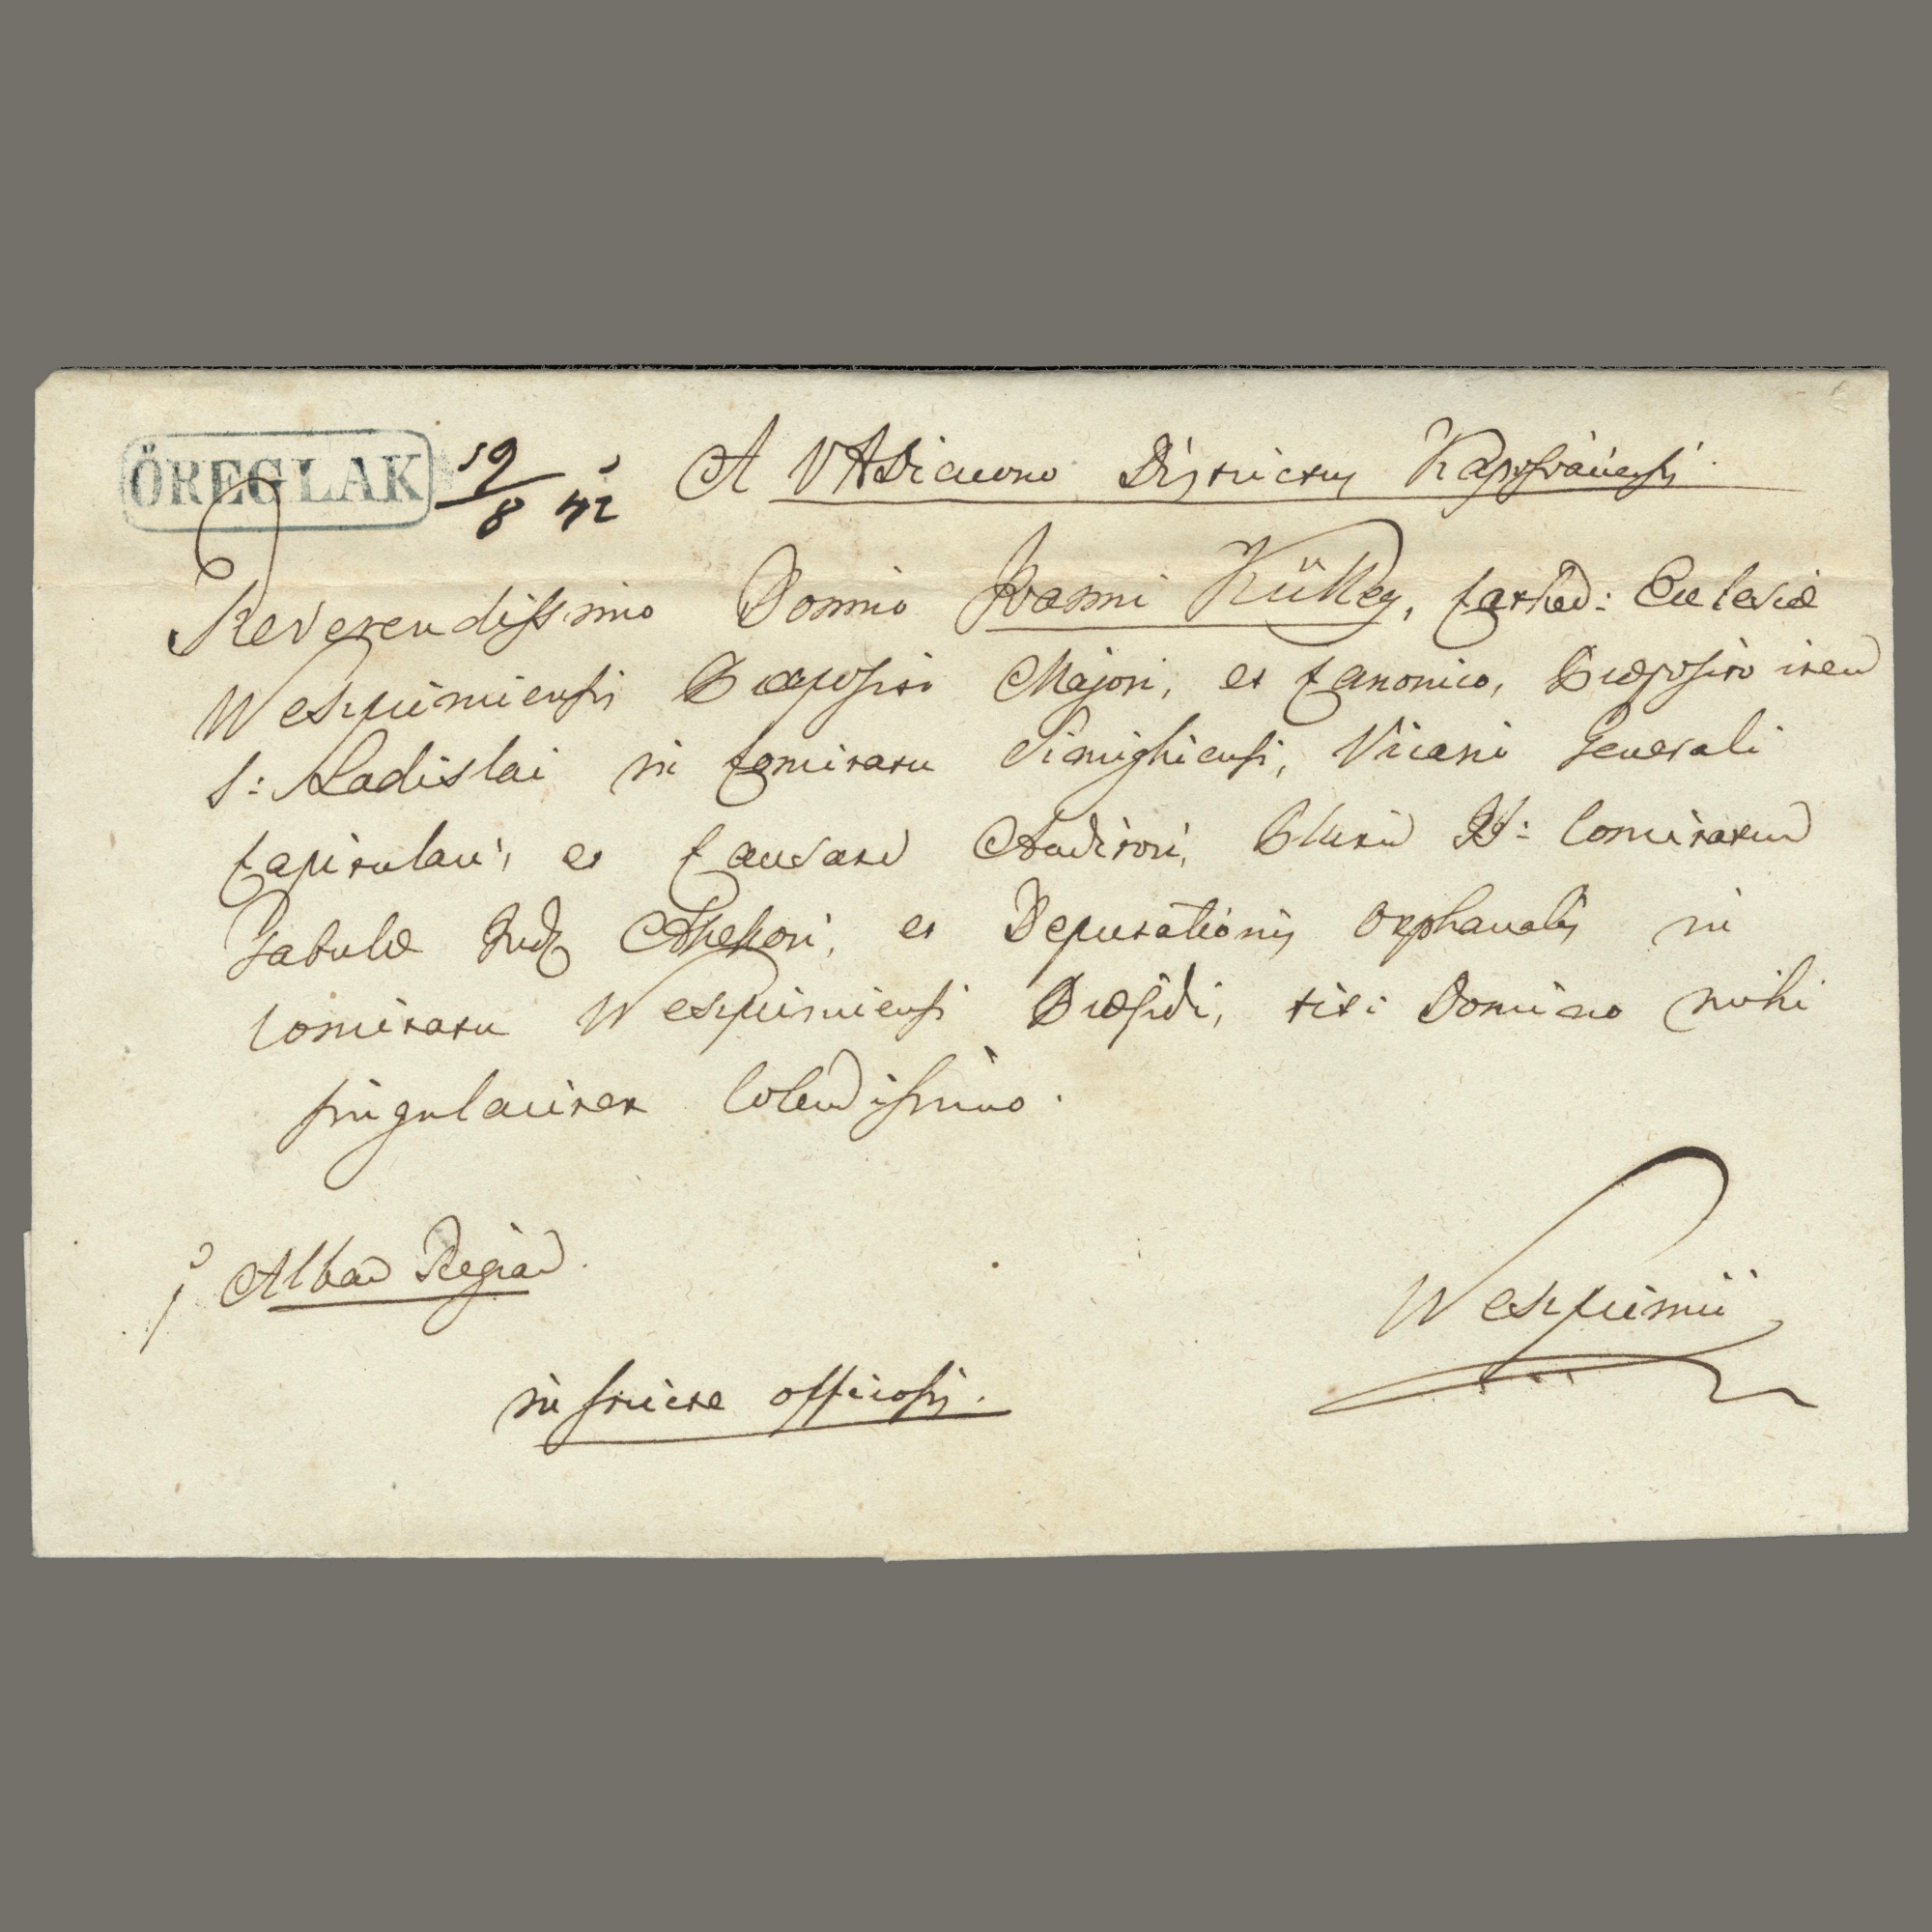 ÖREGLAK 19/8 42 A VADiacono Districtus Kaposváriensis.
Reverendissimo Domino Joanni Külley, Cathed: Ecclesiæ
Weszprimiensis Præposito Majori, et Canonico, Præposito item
S: Ladislai in Comitatu Simighiensi, Vicario Generali
Capitulari, et Causarum Auditori, Plurium II: Comitatuum
Tabulæ Jud Assessori, et Deputationis Orphanalis in
Comitatu Weszprimiensi Præsidi, tit: Domino mihi
singulariter Colendissimo.
p Albam Regiam.
Weszprimii
in stricte officiosis.